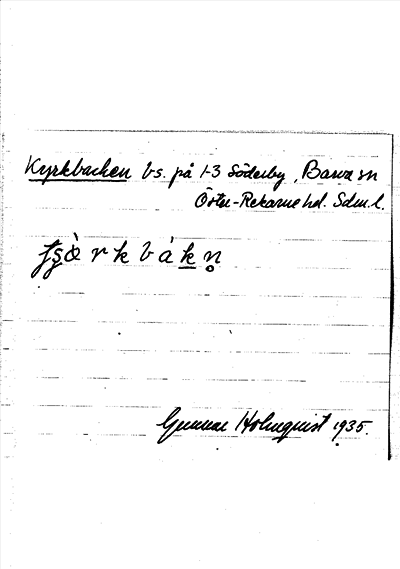 Kyrkbacken bs. på 1-3 Söderby, Barva sn
Öster-Rekarne hd. Sdm.l.
kbákn̥
Gunnar Holmquist 1935.